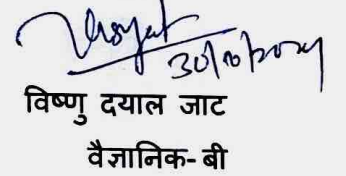 30/10/2024
विष्णु दयाल जाट
वैज्ञानिक- बी